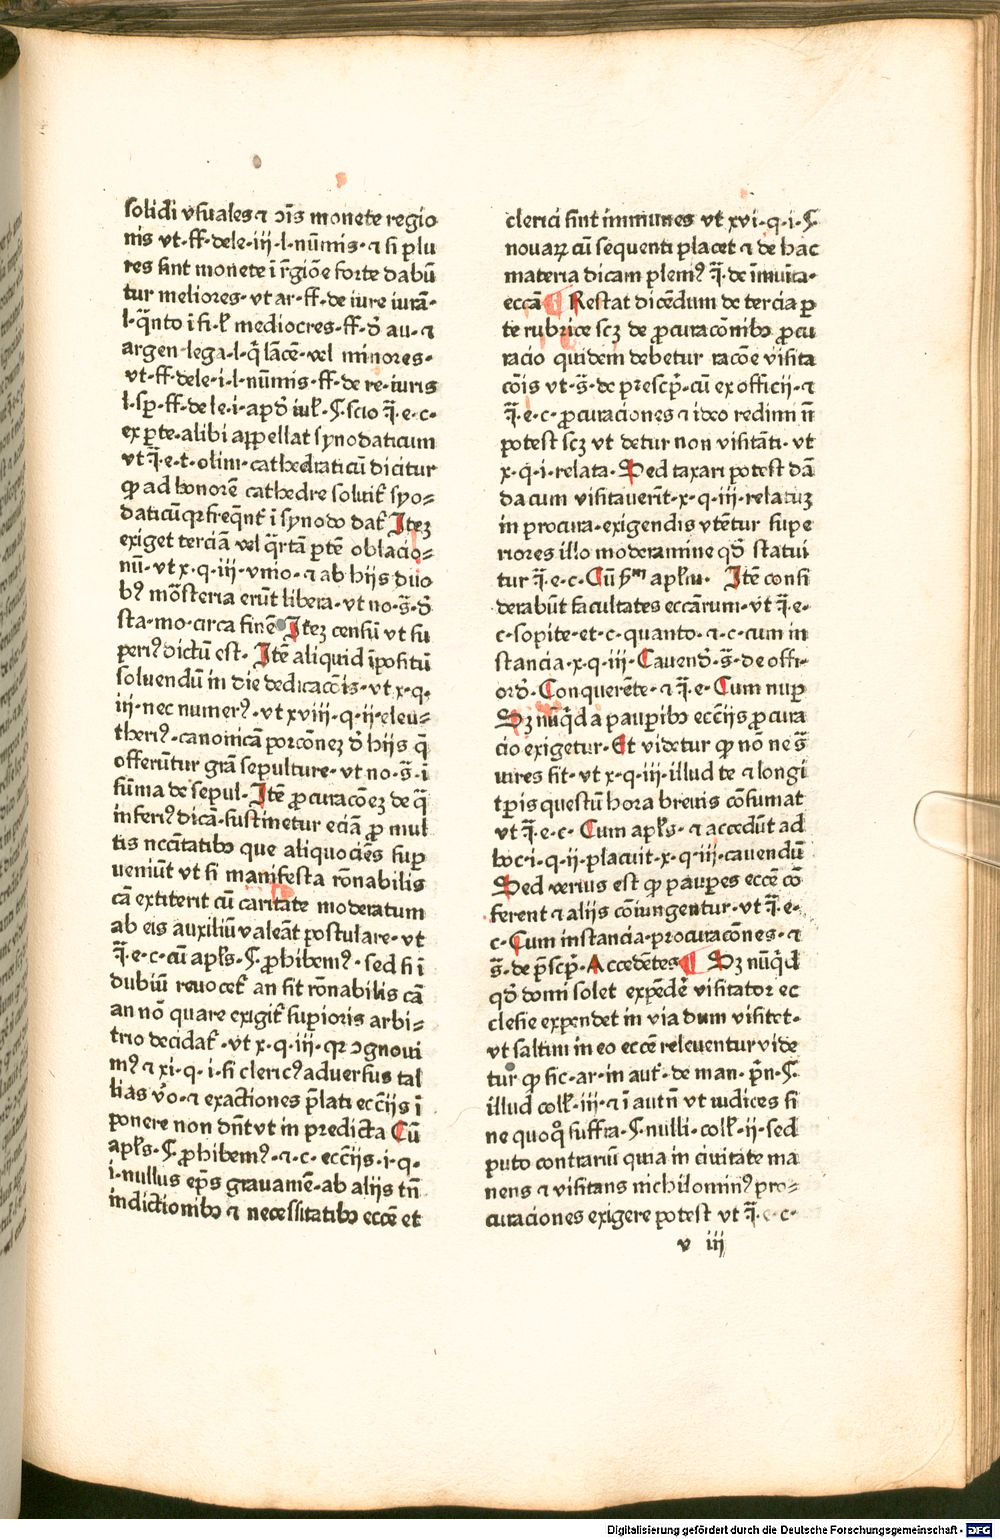 solidi vsuales ⁊ ɔis̄ monete regio
nis vt·ff·dele·iij·l·nūmis·⁊ si plu
res sint monete ī r̄gioē forte dabū
tur meliores·vt ar·ff·de iure iurā·
l·q̄nto ī fi·ł mediocres·ff·d̄ au·⁊
argen·lega·l·q̄ lāce·vel minores·
vt·ff·dele·i·l·nūmis·ff·de re·iuris
l·sp̲·ff·de le·i·apd̄ iuł·¶·scio q̄·e·c·
ex p̲te·alibi appellat synodaticum
vt q̄·e·t·olim·cathedraticū dicitur
ꝙ ad honorē cathedre soluit᷑ syo⸗
daticū qꝛ freq̄nt᷑ ī synodo dat᷑ Itez
exiget terciā vel q̄rtā p̲tē oblacio⸗
nū·vt x·q·iij·vnio·⁊ ab hijs duo
bꝰ mōsteria erūt libera·vt no·s̄·d̄
sta·mo·circa finē Itez censū vt su
periꝰ dictū est· Itē aliquid īpositū
soluendū in die dedicacōis·vt x·q·
iij·nec numerꝰ·vt xviij·q·ij·eleu⸗
theriꝰ·canonicā porcōnez d̄ hijs q̄
offerūtur grā sepulture·vt no·s̄·ī
sūma de sepul·Itē ꝓcuracōez de q̄
inferiꝰ dicā·sustinetur eciā ꝓ mul
tis nccītatibꝫ que aliquociēs sup̲
veniūt vt si manifesta rōnabilis
cā extiterit cū caritate moderatum
ab eis auxiliū valeāt postulare·vt
q̄·e·c·cū apłs·¶·ꝓhibemꝰ·sed si ī
dubiū reuocet᷑ an sit rōnabilis cā
an nō quare exigit᷑ sup̲ioris arbi⸗
trio decidat᷑·vt x·q·iij·qꝛ ɔgnoui
mꝰ ⁊ xi·q·i·si clericꝰ aduersus tal
lias v̄o·⁊ exactiones p̄lati eccīijs ī
ponere non dn̄t vt in predicta Cū
apłs·¶·ꝓhibemꝰ·⁊·c·eccīijs·i·q·
i·nullus ep̄s grauamē·ab alijs tn̄
indictionibꝫ ⁊ necessitatibꝫ eccē et
clerici sint immunes vt xvi·q·i·¶·
nouaꝝ cū sequenti placet ⁊ de hac
materia dicam plemꝰ q̄·de īmuīta·
eccā ¶ Restat dicēdum de tercia p̲
te rubrice scz de ꝓcuracōnibꝫ ꝓcu
racio quidem debetur racōe visita
cōis vt·s̄·de prescp̄·cū ex officij·⁊
q̄·e·c·ꝓcuraciones ⁊ ideo redimi n̄
potest scz vt detur non visitāti·vt
x·q·i·relata·Sed taxari potest dā
da cum visitauerīt·x·q·iij·relatuz
in procura·exigendis vtētur supe
riores illo moderamine qd̄ statui
tur q̄·e·c·Cū p̄ᵐ apłm· Itē consi
derabūt facultates eccārum·vt q̄·e·
c·sopite·et·c·quanto·⁊·c·cum in
stancia·x·q·iij·Cauend̄·s̄·de offi·
ord̄·Conquerēte·⁊ q̄·e·Cum nup̲
Sz nūq̄d a paup̲ibꝫ eccīijs ꝓcura
cio exigetur·Et videtur ꝙ nō ne s̄
vires sit·vt x·q·iij·illud te ⁊ longi
tp̲is questū hora breuis cōsumat
vt q̄·e·c·Cum apłs·⁊ accedūt ad
hoc·i·q·ij·placuit·x·q·iij·cauendū
Sed verius est ꝙ paup̲es eccē cō
ferent ⁊ alijs cōiungentur·vt q̄·e·
c·Cum instancia·procuracōnes·⁊
s̄·de p̄scp̄·Accedētes ¶ Sz nūq̄d
qd̄ domi solet expēdē visitator ec
clesie expendet in via dum visitet·
vt saltim in eo eccē releuentur vide
tur ꝙ sic·ar·in aut᷑·de man·pn̄·¶·
illud coll᷑·iij·⁊ ī autn̄ vt iudices si
ne quoqꝫ suffra·¶·nulli·coll᷑·ij·sed
puto contrariū quia in ciuitate ma
nens ⁊ visitans nichilominꝰ pro⸗
curaciones exigere potest vt q̄·e·c·
v iij
Digitalisierung gefördert durch die Deutsche Forschungsgemeinschaft - DFG